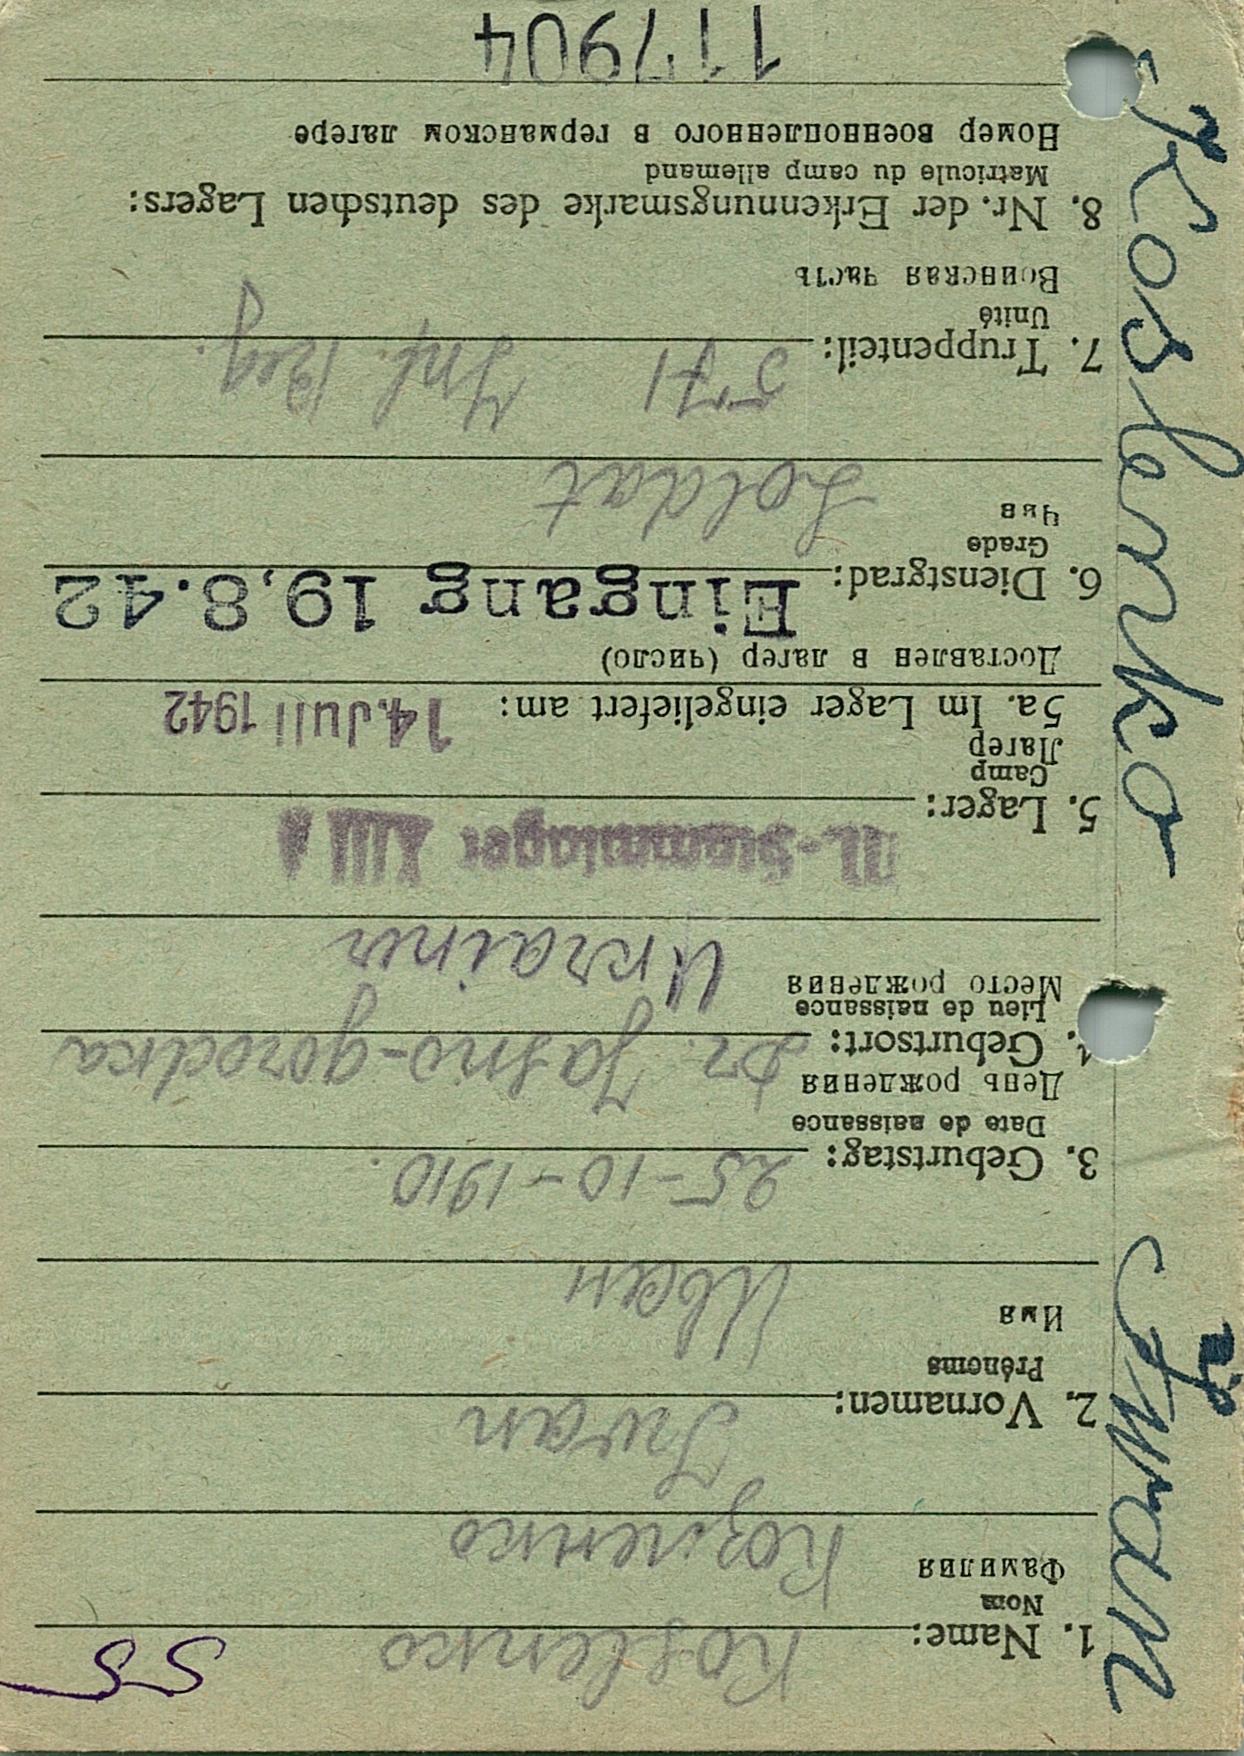 SS
1. Name: Koslenko
Nom
Фамилия Козленко
2. Vornamen: Iwan
Prénoms
Имя Иван
3. Geburtstag: 25-10-1910.
Date de naissance
День рождения
4. Geburtsort: Dr. Jasno-gorodka
Lieu de naissance
Место рождения Ukrainer
5. Lager: M.-Stammlager XIII
Camp
Лагер
5a. Im Lager eingeliefert am: 14. Juli 1942
Доставлен в лагер (число)
Eingang 19.8.42
6. Dienstgrad:
Grade
Чин Soldat
7. Truppenteil: 571 Inf. Reg.
Unité
Воинская часть
8. Nr. der Erkennungsmarke des deutschen Lagers:
Matricule du camp allemand
Номер военнопленного в германском лагере
117904
Koslenko Iwan